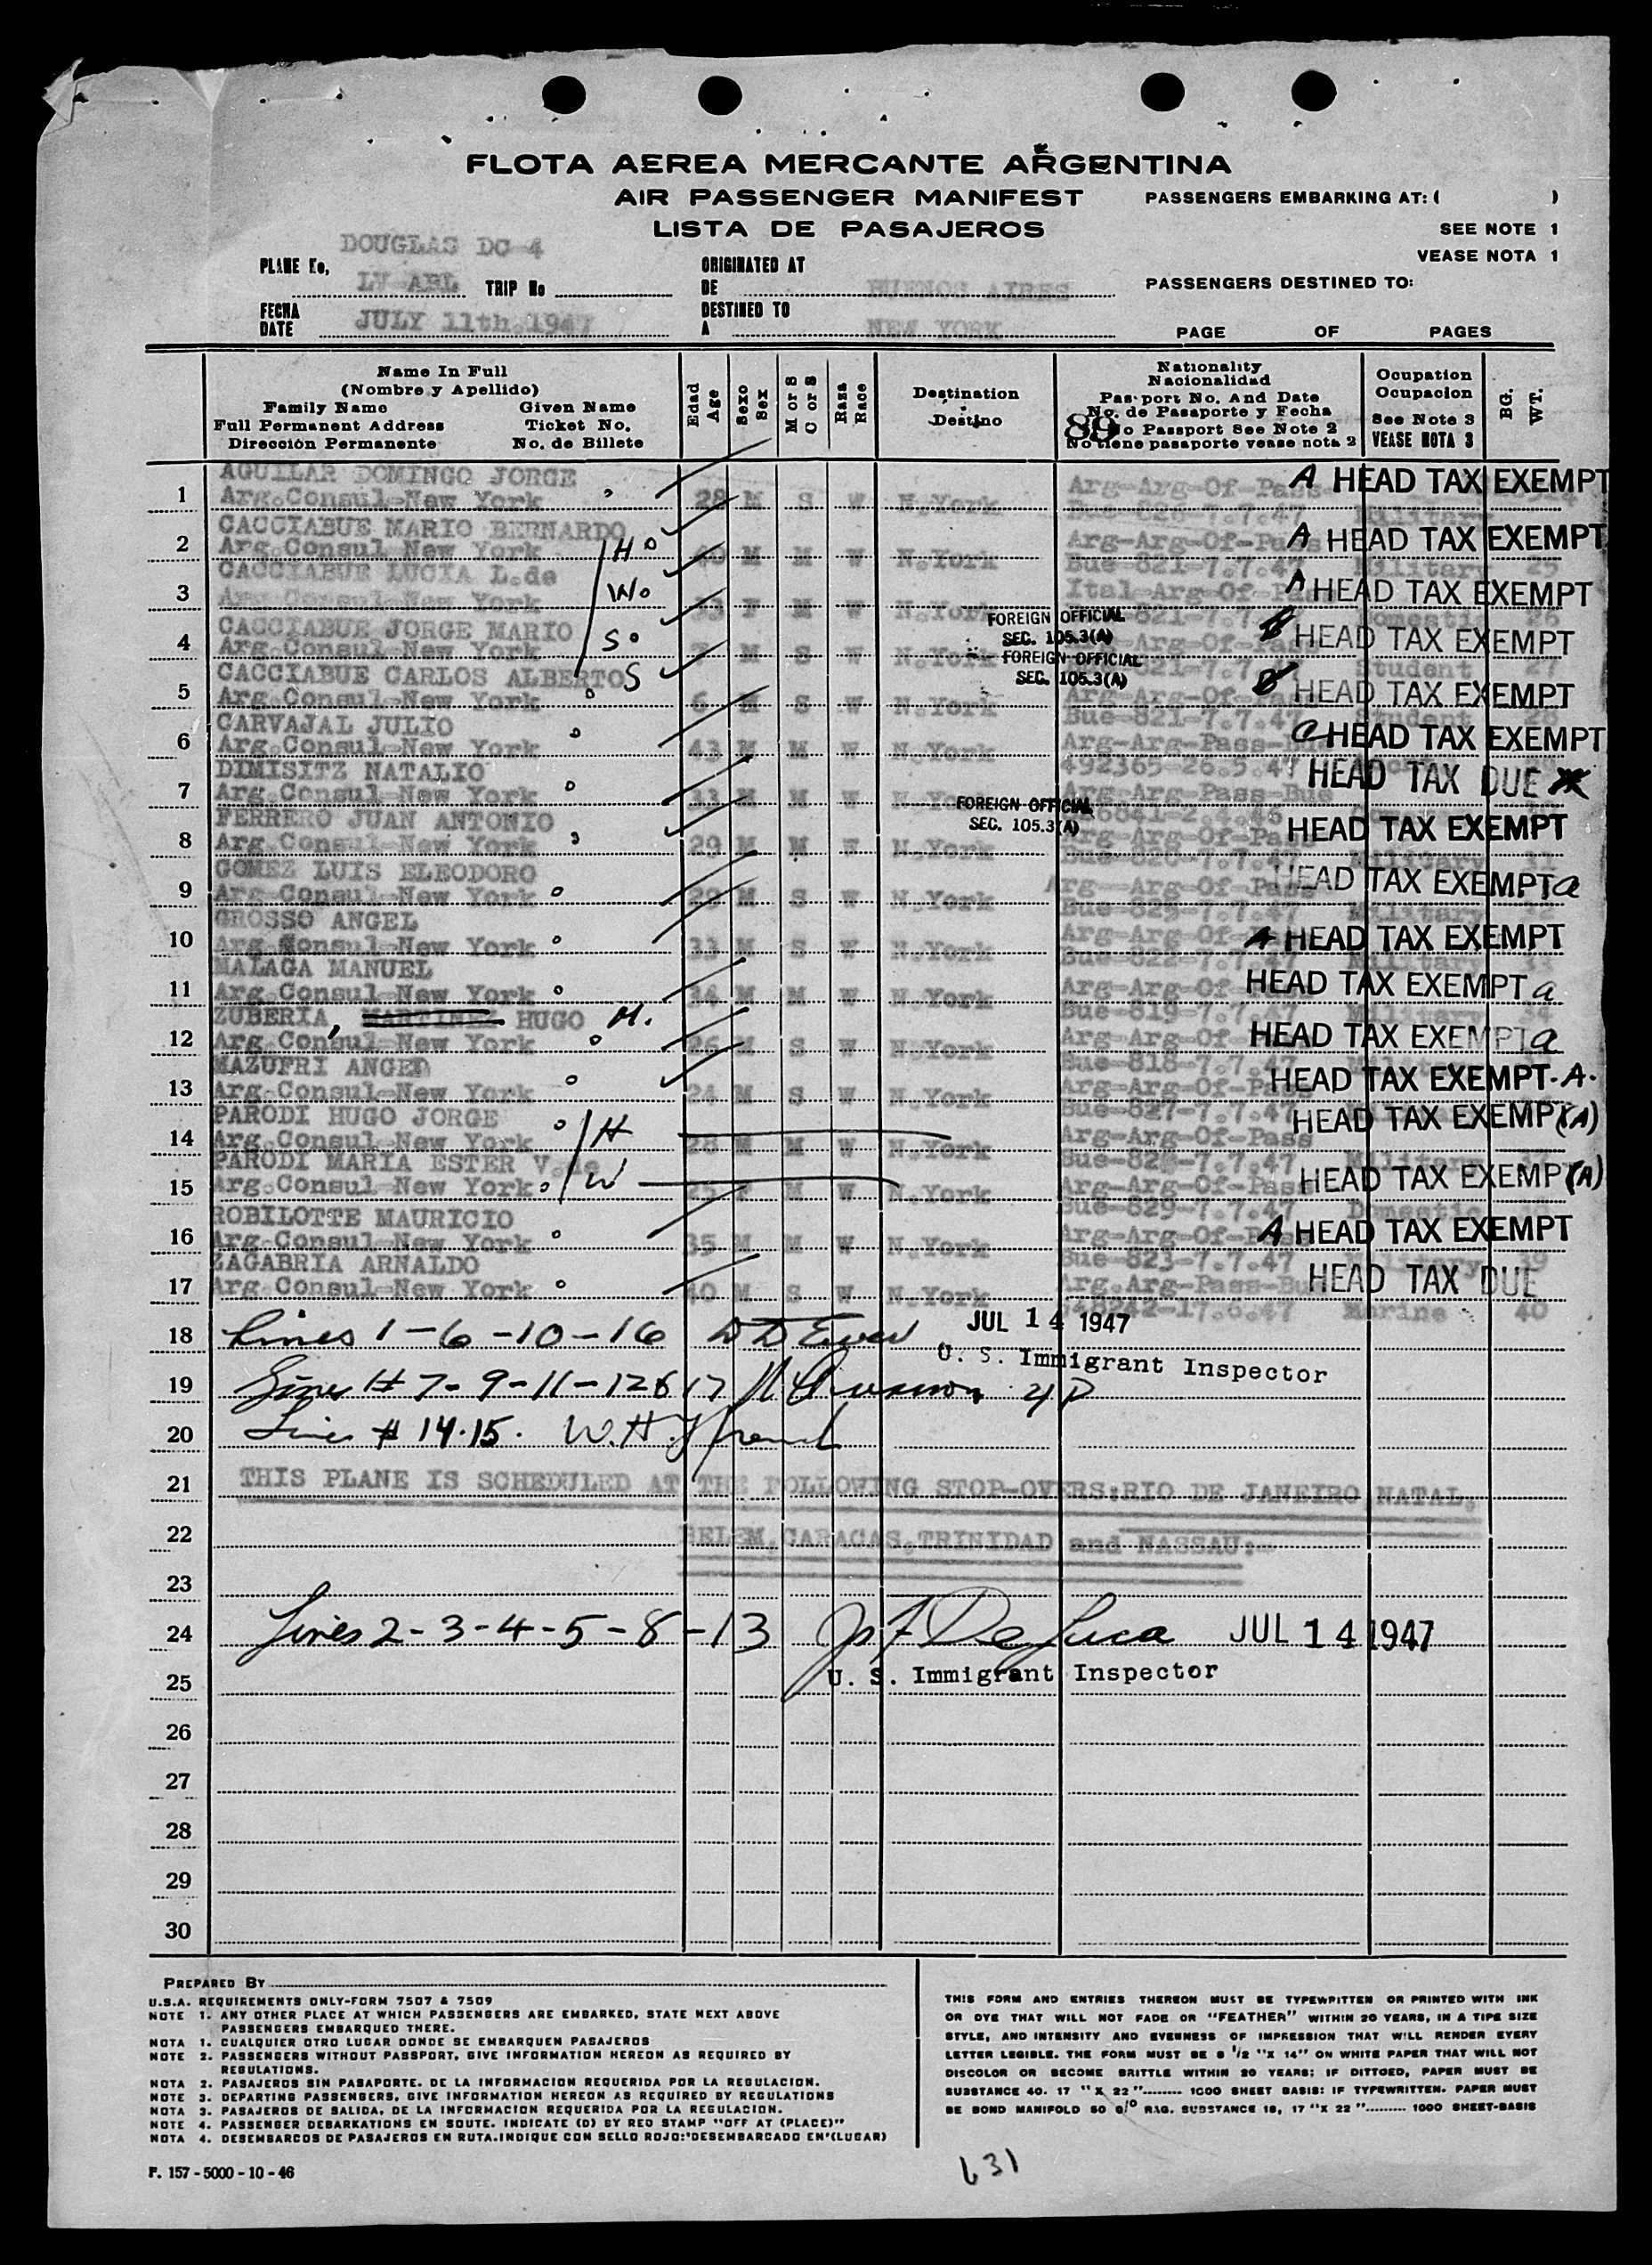 FLOTA AEREA MERCANTE ARGENTINA
AIR PASSENGER MANIFEST
PASSENGERS EMBARKING AT: ( )
LISTA DE PASAJEROS
SEE NOTE 1
VEASE NOTA 1
DOUGLAS DC 4
PLANE No,
TRIP No
ORIGINATED AT
DE BUENOS AIRES
PASSENGERS DESTINED TO:
FECHA
DATE JULY 11th.1947
DESTINED TO
A NEW YORK
PAGE OF PAGES
Name In Full
(Nombre y Apellido)
Family Name Given Name
Full Permanent Address Ticket No.
Dirección Permanente No. de Billete
Edad
Age
Sexo
Sex
M or S
C or S
Rasa
Race
Destination
Destino
Nationality
Nacionalidad
Pas-port No. And Date
No. de Pasaporte y Fecha
No Passport See Note 2
No tiene pasaporte vease nota 2
89
Ocupation
Ocupacion
See Note 3
VEASE NOTA 3
BG.
WT.
AGUILAR DOMINGO JORGE
1 Arg.Consul-New York 28 M S W N.York Arg-Arg-Of-Pass- A HEAD TAX EXEMPT
CACCIABUE MARIO BERNARDO Bue-826-7.7.47 Military
2 Arg.Consul New York H 40 M M W N.York Arg-Arg-Of-Pass A HEAD TAX EXEMPT
CACCIABUE LUCIA L.de Bue-821-7.7.47 Military 25
3 Arg.Consul-New York W 33 F M W N.York Ital-Arg-Of- A HEAD TAX EXEMPT
CACCIABUE JORGE MARIO FOREIGN OFFICIAL 821-7.7.47 Domestic 26
4 Arg.Consul-New York S M S W N.York SEC. 105.3(A) Arg-Of-Pass HEAD TAX EXEMPT
CACCIABUE CARLOS ALBERTO S FOREIGN OFFICIAL 821-7.7.47 Student 27
SEC. 105.3(A)
5 Arg.Consul-New York 6 M S W N.York Arg-Arg-Of-Pass HEAD TAX EXEMPT
CARVAJAL JULIO Bue-821-7.7.47 Student 28
6 Arg.Consul-New York 43 M M W N.York Arg-Arg-Pass-Bue a HEAD TAX EXEMPT
DIMISITZ NATALIO 492365-26.5.47
7 Arg.Consul-New York 33 M M W N.York Arg-Arg-Pass-Bue HEAD TAX DUE
FERRERO JUAN ANTONIO FOREIGN OFFICIAL
SEC. 105.3(A)
8 Arg.Consul-New York 29 M M W N.York Arg-Arg-Of-Pass HEAD TAX EXEMPT
GOMEZ LUIS ELEODORO Bue-820-7.7.47 Military
9 Arg-Consul-New York 29 M S W N.York Arg-Arg-Of-Pass HEAD TAX EXEMPT a
GROSSO ANGEL Bue-825-7.7.47 Military 32
10 Arg.Consul-New York 33 M S W N.York Arg-Arg-Of-Pass A HEAD TAX EXEMPT
MALAGA MANUEL Bue-822-7.7.47 Military
11 Arg.Consul-New York 34 M M W N.York Arg-Arg-Of-Pass HEAD TAX EXEMPT a
ZUBERIA, MARTINEZ HUGO M. Bue-819-7.7.47 Military 34
12 Arg.Consul-New York 26 M S W N.York Arg-Arg-Of-Pass HEAD TAX EXEMPT a
MAZUFRI ANGEL Bue-818-7.7.47
13 Arg.Consul-New York 24 M S W N.York Arg-Arg-Of-Pass HEAD TAX EXEMPT-A-
PARODI HUGO JORGE Bue-827-7.7.47
14 Arg.Consul-New York H 28 M M W N.York Arg-Arg-Of-Pass HEAD TAX EXEMP(A)
PARODI MARIA ESTER V.de 7.7.47 Military
15 Arg.Consul-New York W 25 F M W N.York Arg-Arg-Of-Pass HEAD TAX EXEMP(A)
ROBILOTTE MAURICIO Bue-829-7.7.47 Domestic
16 Arg.Consul-New York 35 M M W N.York Arg-Arg-Of-Pass A HEAD TAX EXEMPT
ZAGABRIA ARNALDO Bue-823-7.7.47 Military 39
17 Arg Consul-New York 40 M S W N.York Arg.Arg-Pass-Bue HEAD TAX DUE
Marine 40
18 Lines 1-6-10-16 JUL 14 1947
U. S. Immigrant Inspector
19 Lines # 7-9-11-12 & 17
20 Lines # 14.15. W.H.
21 THIS PLANE IS SCHEDULED AT THE FOLLOWING STOP-OVERS:RIO DE JANEIRO NATAL,
22 BELEM,CARACAS,TRINIDAD and NASSAU:-
23
24 Lines 2-3-4-5-8-13 De Luca JUL 14 1947
25 U. S. Immigrant Inspector
26
27
28
29
30
PREPARED BY
U.S.A. REQUIREMENTS ONLY-FORM 7507 & 7509
NOTE 1. ANY OTHER PLACE AT WHICH PASSENGERS ARE EMBARKED, STATE NEXT ABOVE
PASSENGERS EMBARQUED THERE.
NOTA 1. CUALQUIER OTRO LUGAR DONDE SE EMBARQUEN PASAJEROS
NOTE 2. PASSENGERS WITHOUT PASSPORT, GIVE INFORMATION HEREON AS REQUIRED BY
REGULATIONS.
NOTA 2. PASAJEROS SIN PASAPORTE. DE LA INFORMACION REQUERIDA POR LA REGULACION.
NOTE 3. DEPARTING PASSENGERS, GIVE INFORMATION HEREON AS REQUIRED BY REGULATIONS
NOTA 3. PASAJEROS DE SALIDA, DE LA INFORMACION REQUERIDA POR LA REGULACION.
NOTE 4. PASSENGER DEBARKATIONS EN SOUTE. INDICATE (D) BY RED STAMP "OFF AT (PLACE)"
NOTA 4. DESEMBARCOS DE PASAJEROS EN RUTA.INDIQUE CON SELLO ROJO:"DESEMBARCADO EN"(LUGAR)
THIS FORM AND ENTRIES THEREON MUST BE TYPEWPITTEN OR PRINTED WITH INK
OR DYE THAT WILL NOT FADE OR "FEATHER" WITHIN 20 YEARS, IN A TIPE SIZE
STYLE, AND INTENSITY AND EVENNESS OF IMPRESSION THAT WILL RENDER EVERY
LETTER LEGIBLE. THE FORM MUST BE 8 1/2 "X 14" ON WHITE PAPER THAT WILL NOT
DISCOLOR OR BECOME BRITTLE WITHIN 20 YEARS; IF DITTOED, PAPER MUST BE
SUBSTANCE 40. 17 "X 22"........ 1000 SHEET BASIS: IF TYPEWRITTEN. PAPER MUST
BE BOND MANIFOLD 50 0/0 RAG. SUBSTANCE 18, 17 "X 22"......... 1000 SHEET-BASIS
F. 157 - 5000 - 10 - 46
631